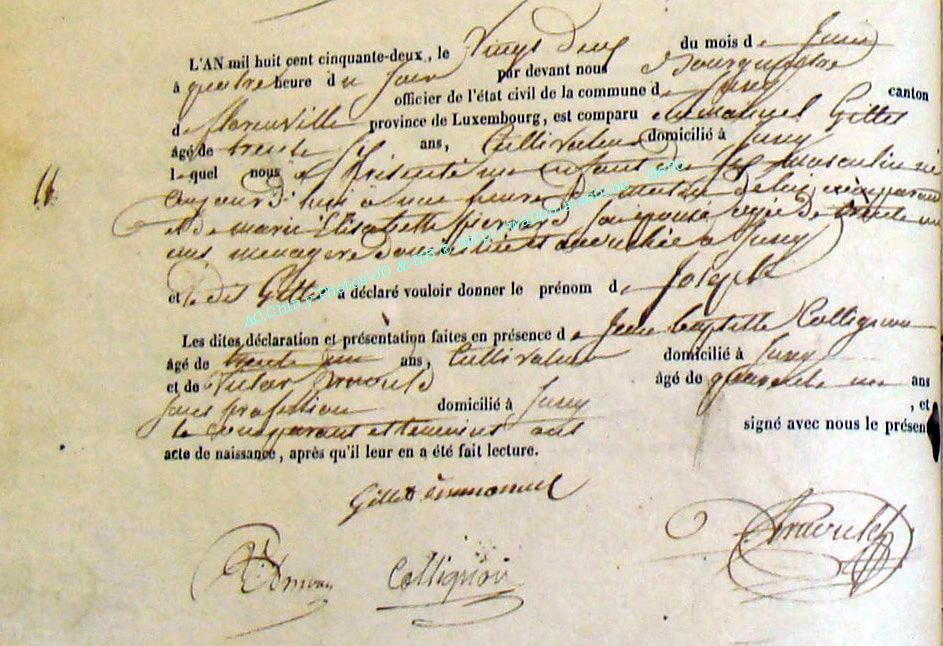 L'AN mil huit cent cinquante-deux, le Vingt deux du mois de Juin
à quatre heure du soir par devant nous Bourguemestre
officier de l'état civil de la commune de Jusey canton
de florenville province de Luxembourg, est comparu emmanuel Gillet
âgé de trente six ans, Cultivateur domicilié à Jusey
lequel nous a présenté un enfant du sexe masculin né
aujourd'hui à une heure du matin de lui comparant
et de marie Elisabette pierrard son épouse agée de trente un
ans menagere domiciliée et accouchée à Jusey
et le dit Gillet a déclaré vouloir donner le prénom de Joseph
Les dites déclaration et présentation faites en présence de Jean baptiste Collignon
âgé de trente un ans, Cultivateur domicilié à Jusey
et de Victor arnould âgé de quarante un ans
sans profession domicilié à Jusey , et
le comparant et temoins ont signé avec nous le présent
acte de naissance, après qu'il leur en a été fait lecture.
Gillet émmanuel
Collignon
Arnould